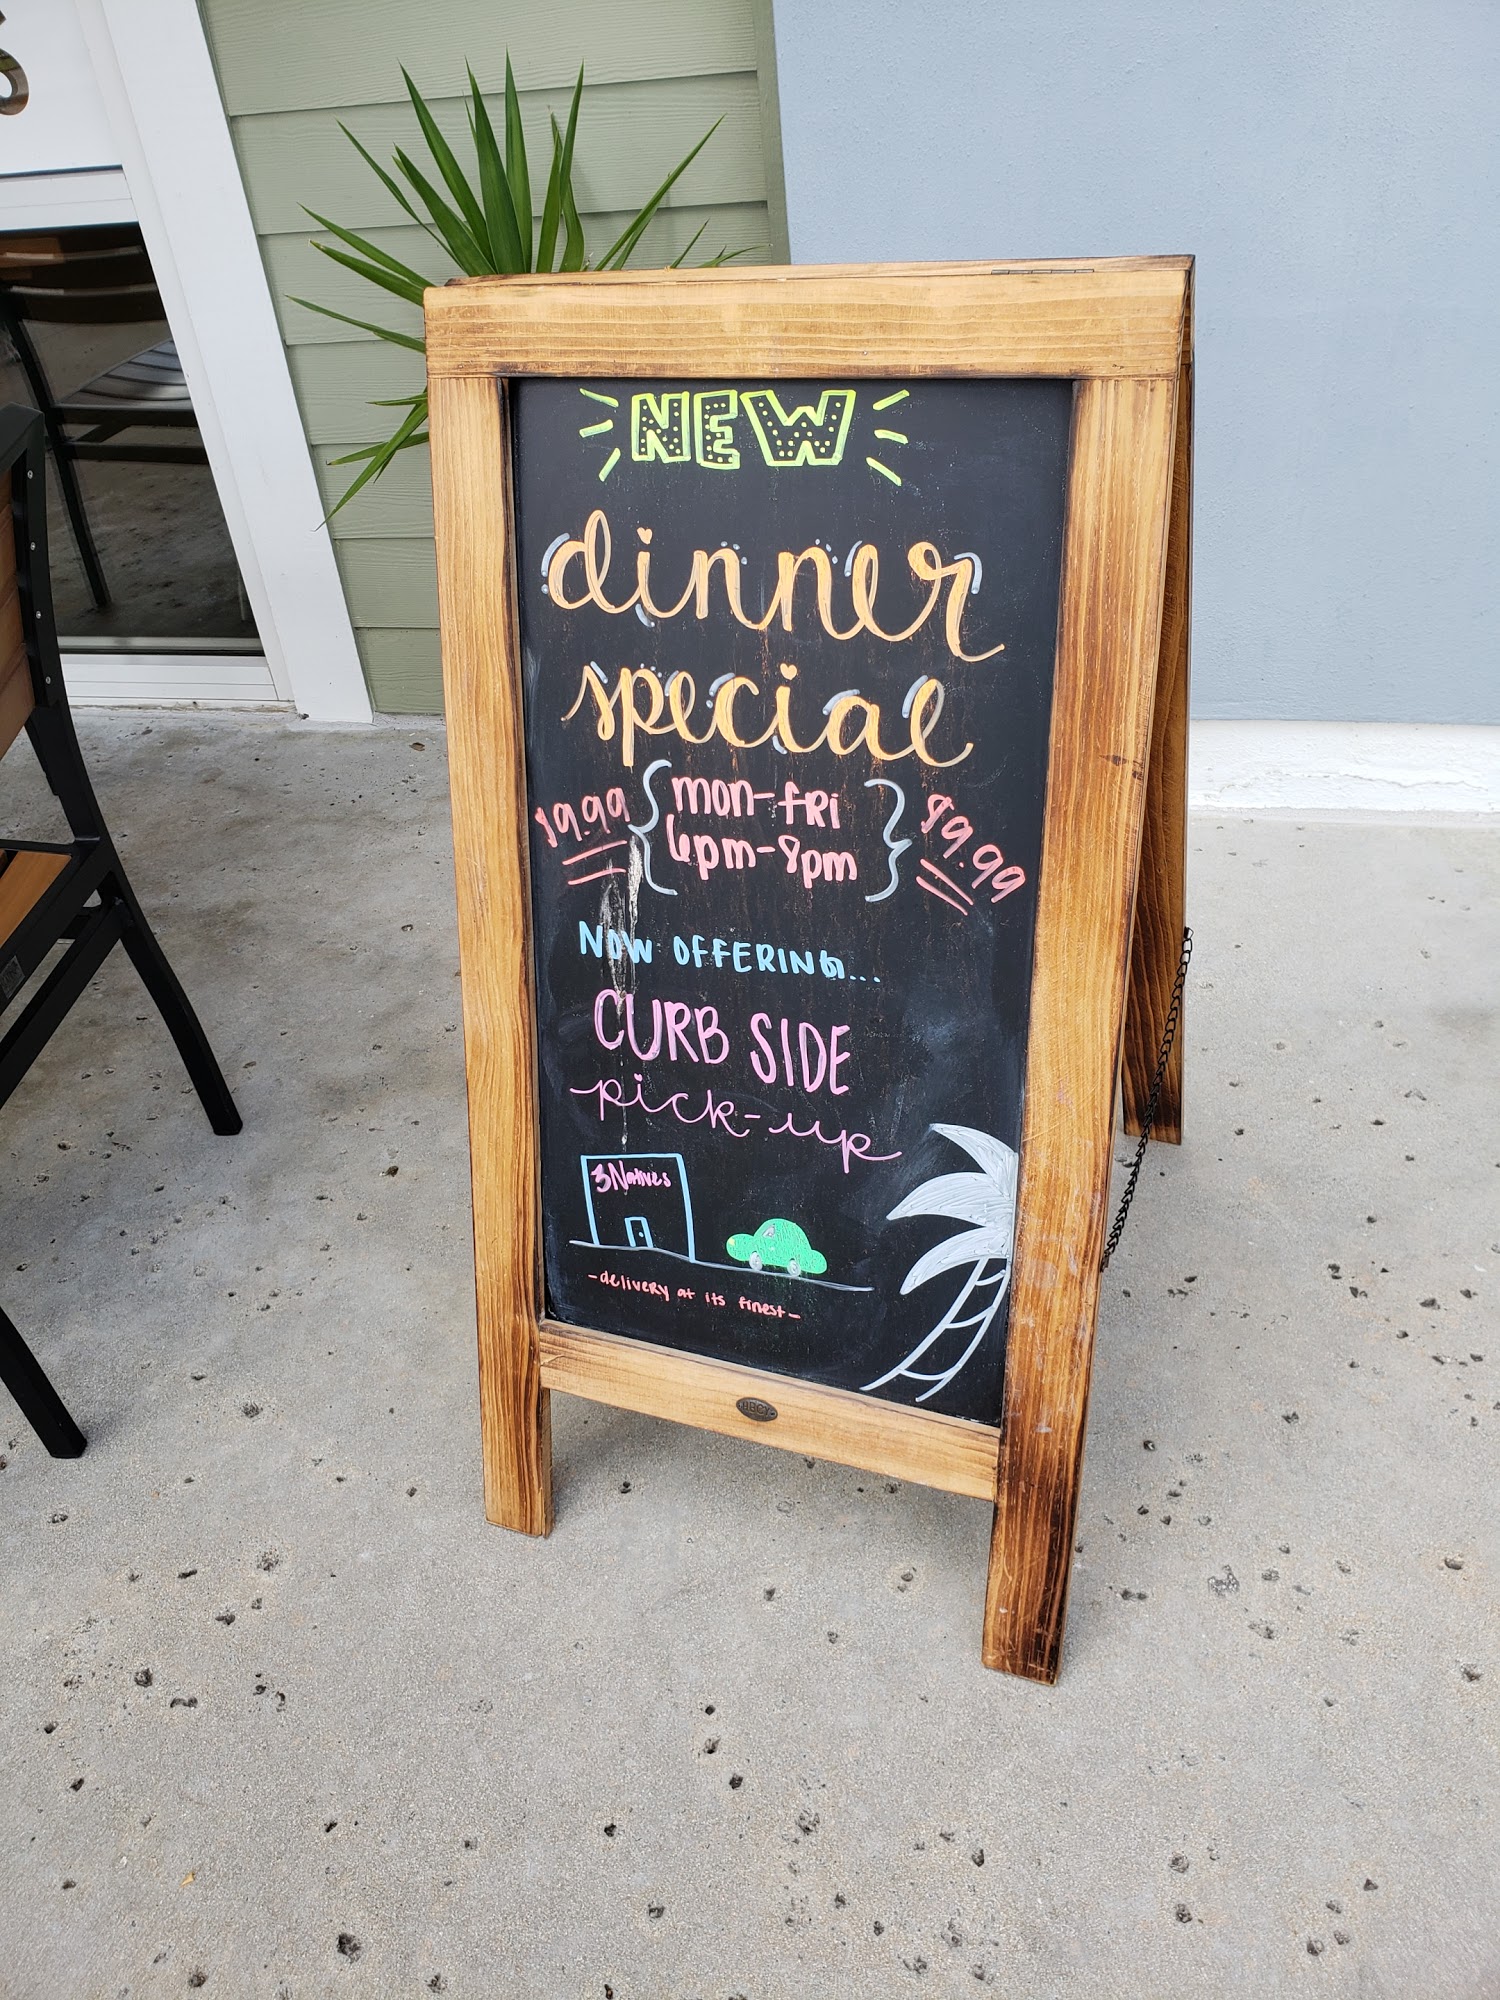 NEW
dinner
special
$9.99 { mon-fri } $9.99
6pm-8pm
NOW OFFERING...
CURB SIDE
pick-up
3Natives
-delivery at its finest-